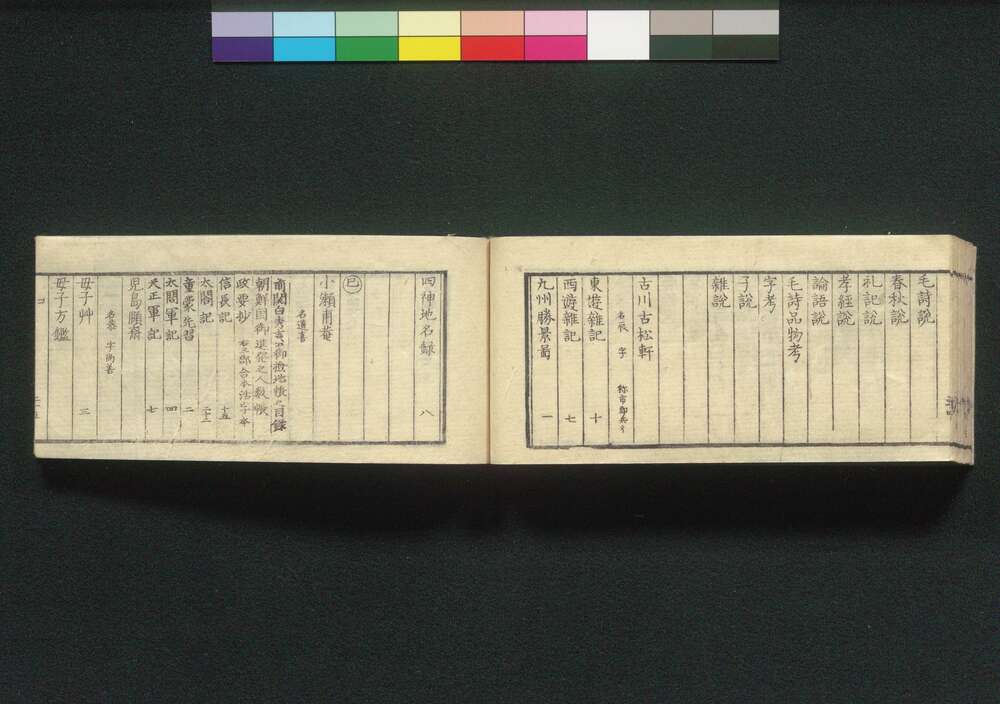 毛詩説
春秋説
礼記説
孝経説
論語説
毛詩品物考
字考
子説
雜説
古川古松軒
名辰 字 称市郎兵ヱ
東遊雜記 十
西遊雜記 七
九州勝景畧 一
四神地名録 八
㋙
小瀬甫菴
名道喜
朝鮮国御進発之人数帳
政要抄
信長記 十五
太閤記 二十二
童蒙先習 二
太閤軍記 四
天正軍記 七
児島頤斎
字尚善
母子艸 三
母子方鑑